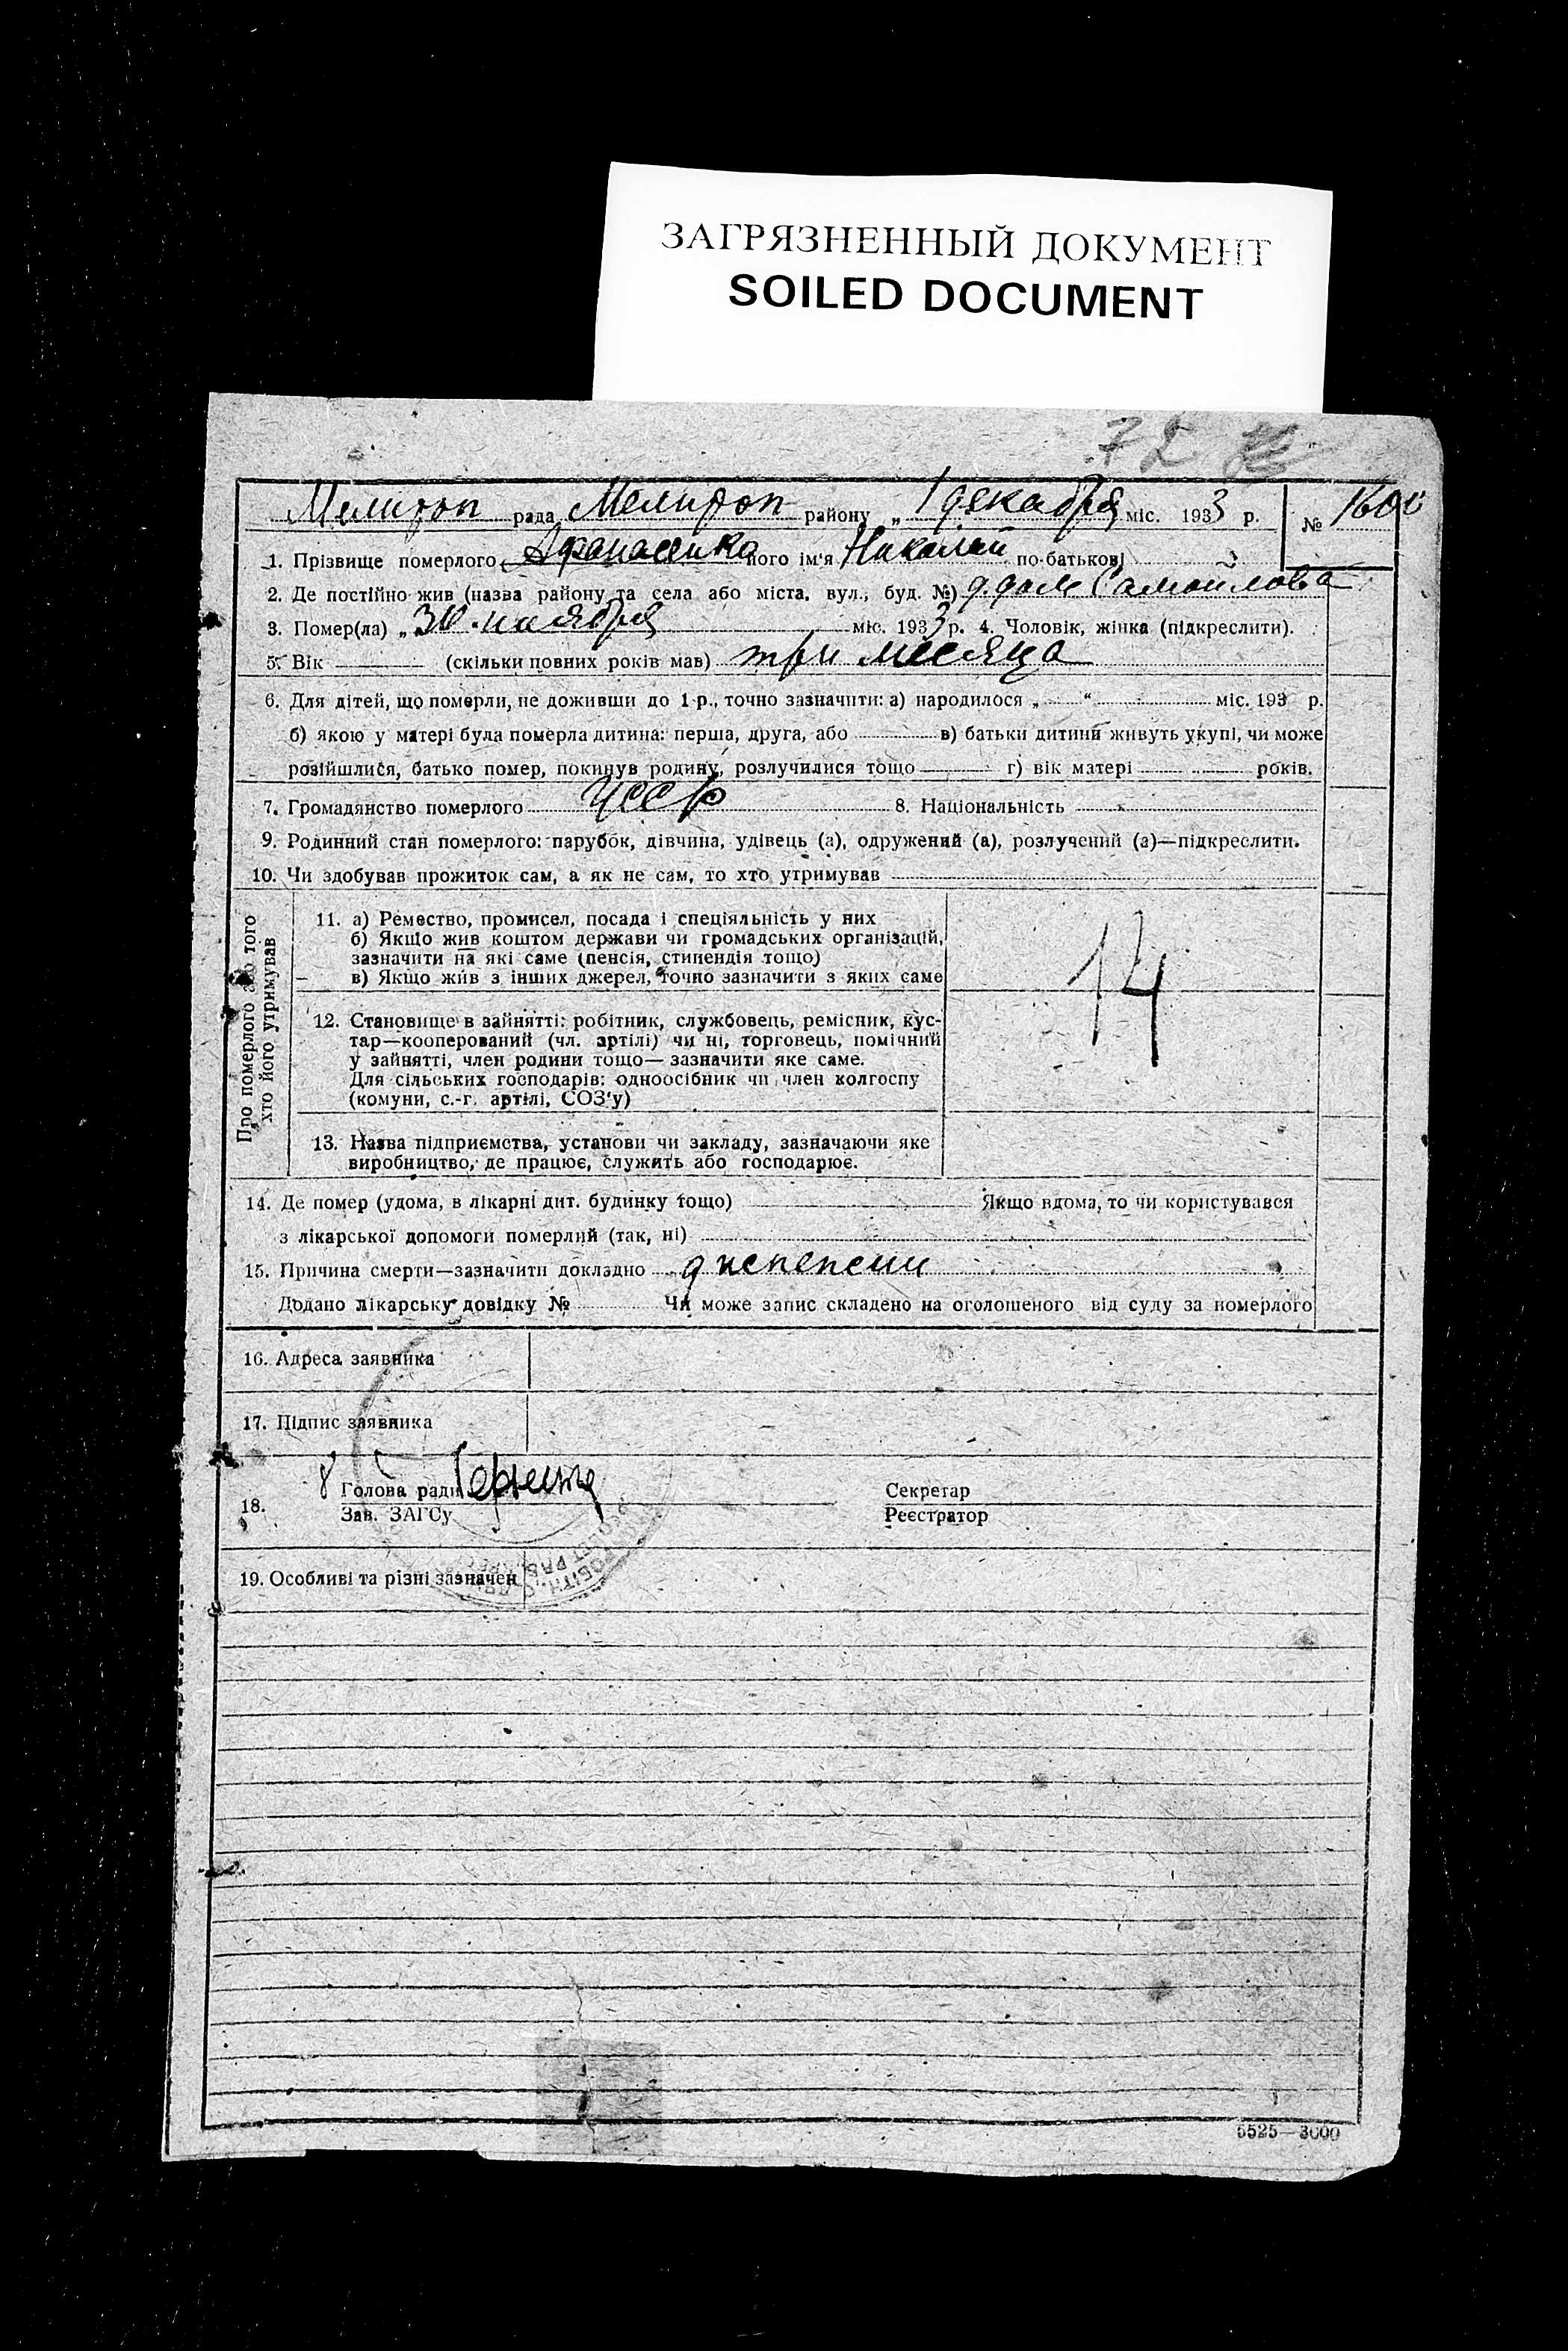 ЗАГРЯЗНЕННЫЙ ДОКУМЕНТ
SOILED DOCUMENT
72
Мелитоп рада Мелитоп району „1 декабря міс. 1933 р. № 1600
1. Прізвище померлого Афанасенко його ім'я Николай по-батькові
2. Де постійно жив (назва району та села або міста, вул., буд. №) д. дом Самойлова
3. Помер(ла) „30 ноября міс. 1933 р. 4. Чоловік, жінка (підкреслити).
5. Вік (скільки повних років мав) три месяца
6. Для дітей, що померли, не доживши до 1 р., точно зазначити: а) народилося „ “ міс. 193 р.
б) якою у матері була померла дитина: перша, друга, або в) батьки дитини живуть укупі, чи може
розійшлися, батько помер, покинув родину, розлучилися тощо г) вік матері років.
7. Громадянство померлого УССР 8. Національність
9. Родинний стан померлого: парубок, дівчина, удівець (а), одружений (а), розлучений (а)—підкреслити.
10. Чи здобував прожиток сам, а як не сам, то хто утримував
Про померлого або того
хто його утримував
11. а) Ремество, промисел, посада і спеціяльність у них
б) Якщо жив коштом держави чи громадських організацій,
зазначити на які саме (пенсія, стипендія тощо)
в) Якщо жив з інших джерел, точно зазначити з яких саме
14
12. Становище в зайнятті: робітник, службовець, ремісник, кус-
тар—кооперований (чл. артілі) чи ні, торговець, помічний
у зайнятті, член родини тощо—зазначити яке саме.
Для сільських господарів: одноосібник чи член колгоспу
(комуни, с.-г. артілі, СОЗ'у)
13. Назва підприємства, установи чи закладу, зазначаючи яке
виробництво, де працює, служить або господарює.
14. Де помер (удома, в лікарні дит. будинку тощо) Якщо вдома, то чи користувався
з лікарської допомоги померлий (так, ні)
15. Причина смерти—зазначити докладно диспепсии
Додано лікарську довідку № Чи може запис складено на оголошеного від суду за померлого
16. Адреса заявника
17. Підпис заявника
18. Голова ради Секретар
Зав. ЗАГСу Реєстратор
19. Особливі та різні зазначен
5525—3000